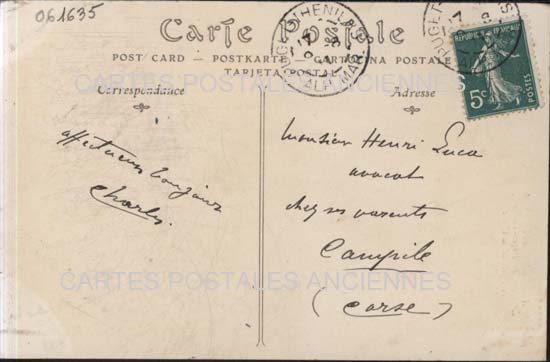 061635
Carte Postale
POST CARD — POSTKARTE — CARTOLINA POSTALE
TARJETA POSTAL
CARTES POSTALES ANCIENNES
Correspondance
Adresse
PUGET-THENIERS
ALPES MAR
PUGET
5c
POSTES
affectueux bonjour
Charles.
Monsieur Henri Luca
avocat
chez ses parents
Campile
(Corse)
CARTES POSTALES ANCIENNES